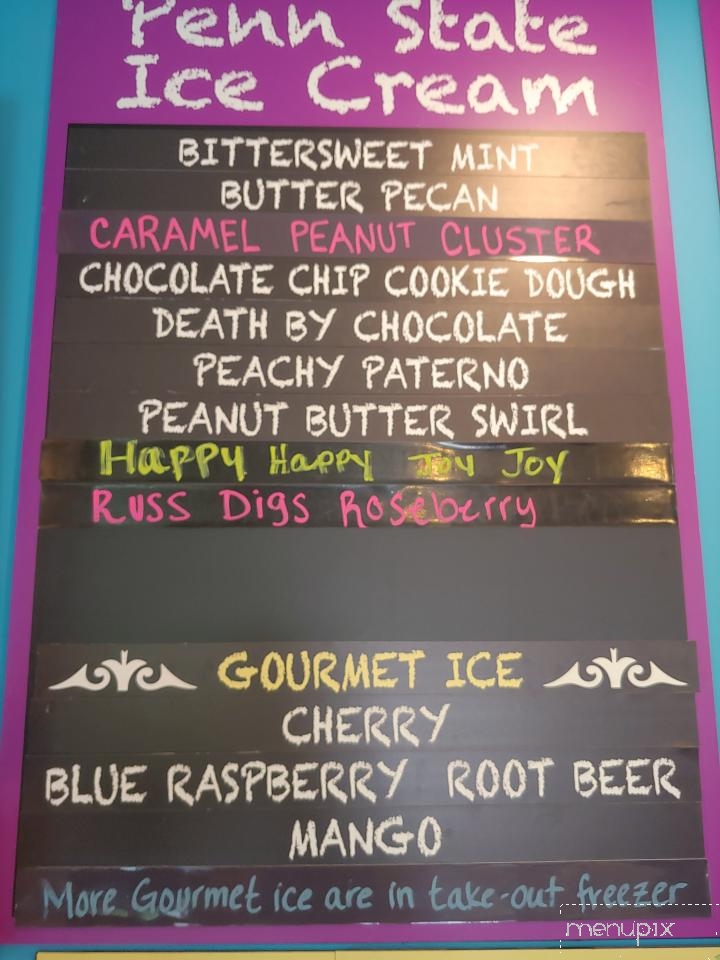 Penn State
Ice Cream
BITTERSWEET MINT
BUTTER PECAN
CARAMEL PEANUT CLUSTER
CHOCOLATE CHIP COOKIE DOUGH
DEATH BY CHOCOLATE
PEACHY PATERNO
PEANUT BUTTER SWIRL
Happy Happy Joy Joy
Russ Digs Roseberry
GOURMET ICE
CHERRY
BLUE RASPBERRY ROOT BEER
MANGO
More Gourmet ice are in take-out freezer
menupix